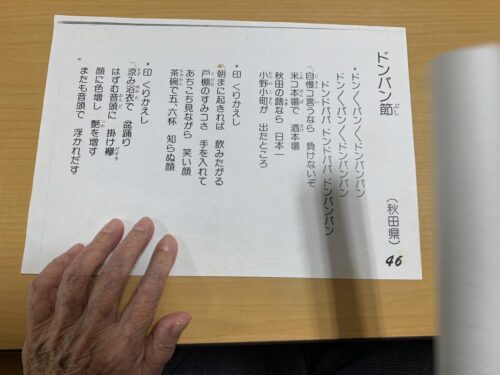 ドンパン節
(秋田県)
46
* ドン〱パン〱ドンパンパン
ドン〱パン〱ドンパンパン
ドンドパパ ドンドパパ ドンパンパン
自慢コ言うなら 負けないぞ
米コ本場で 酒本場
秋田の蕗なら 日本一
小野小町が 出たところ
* 印 くりかえし
朝まに起きれば 飲みたがる
戸棚のすみコさ 手を入れて
あちこち見ながら 笑い顔
茶碗で五、六杯 知らぬ顔
* 印 くりかえし
涼み浴衣で 盆踊り
はずむ音頭に 掛け襷
顔に色増し 艶を増す
またも音頭で 浮かれだす